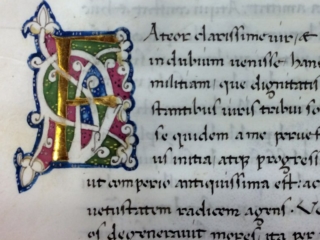 FAteor clarissime uir, et
in dubium uenisse hanc
militiam, que dignitatis
stantibus uiris tribui so
se quidem a me peruest
us initia, atq progressi
ut comperio antiquissima est: ac
uetustatem radicem agens. Ve
os degenerauit mores, ita per